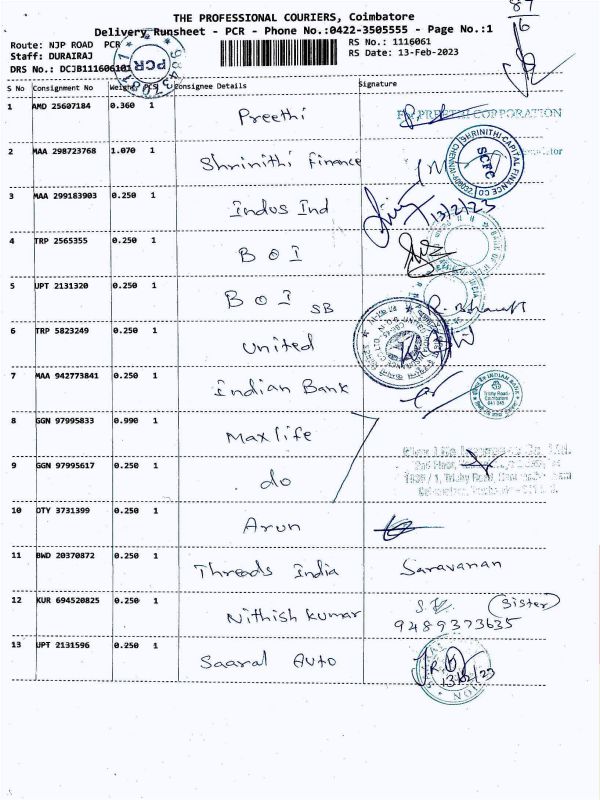 THE PROFESSIONAL COURIERS, Coimbatore
Delivery Runsheet - PCR - Phone No.:0422-3505555 - Page No.:1
Route: NJP ROAD PCR
RS No.: 1116061
Staff: DURAIRAJ
RS Date: 13-Feb-2023
DRS No.: DCJB111606101
PCR
S No Consignment No Weight PCS Consignee Details Signature
1 AMD 25607184 0.360 1 Preethi
For PREETHI CORPORATION
2 MAA 298723768 1.070 1 Shrinithi finance
SHRINITHI CAPITAL FINANCE CO
SCFC
3 MAA 299183903 0.250 1 Indus Ind
13/2/23
4 TRP 2565355 0.250 1 B O I
5 UPT 2131320 0.250 1 B O I SB
6 TRP 5823249 0.250 1 United
7 MAA 942773841 0.250 1 Indian Bank
INDIAN BANK
Trichy Road
Coimbatore
8 GGN 97995833 0.990 1 Max life
9 GGN 97995617 0.250 1 do
10 OTY 3731399 0.250 1 Arun
11 BWD 20370872 0.250 1 Threads India Saravanan
12 KUR 694520825 0.250 1 Nithish kumar (Sister)
9489373635
13 UPT 2131596 0.250 1 Saaral Auto
13/2/23